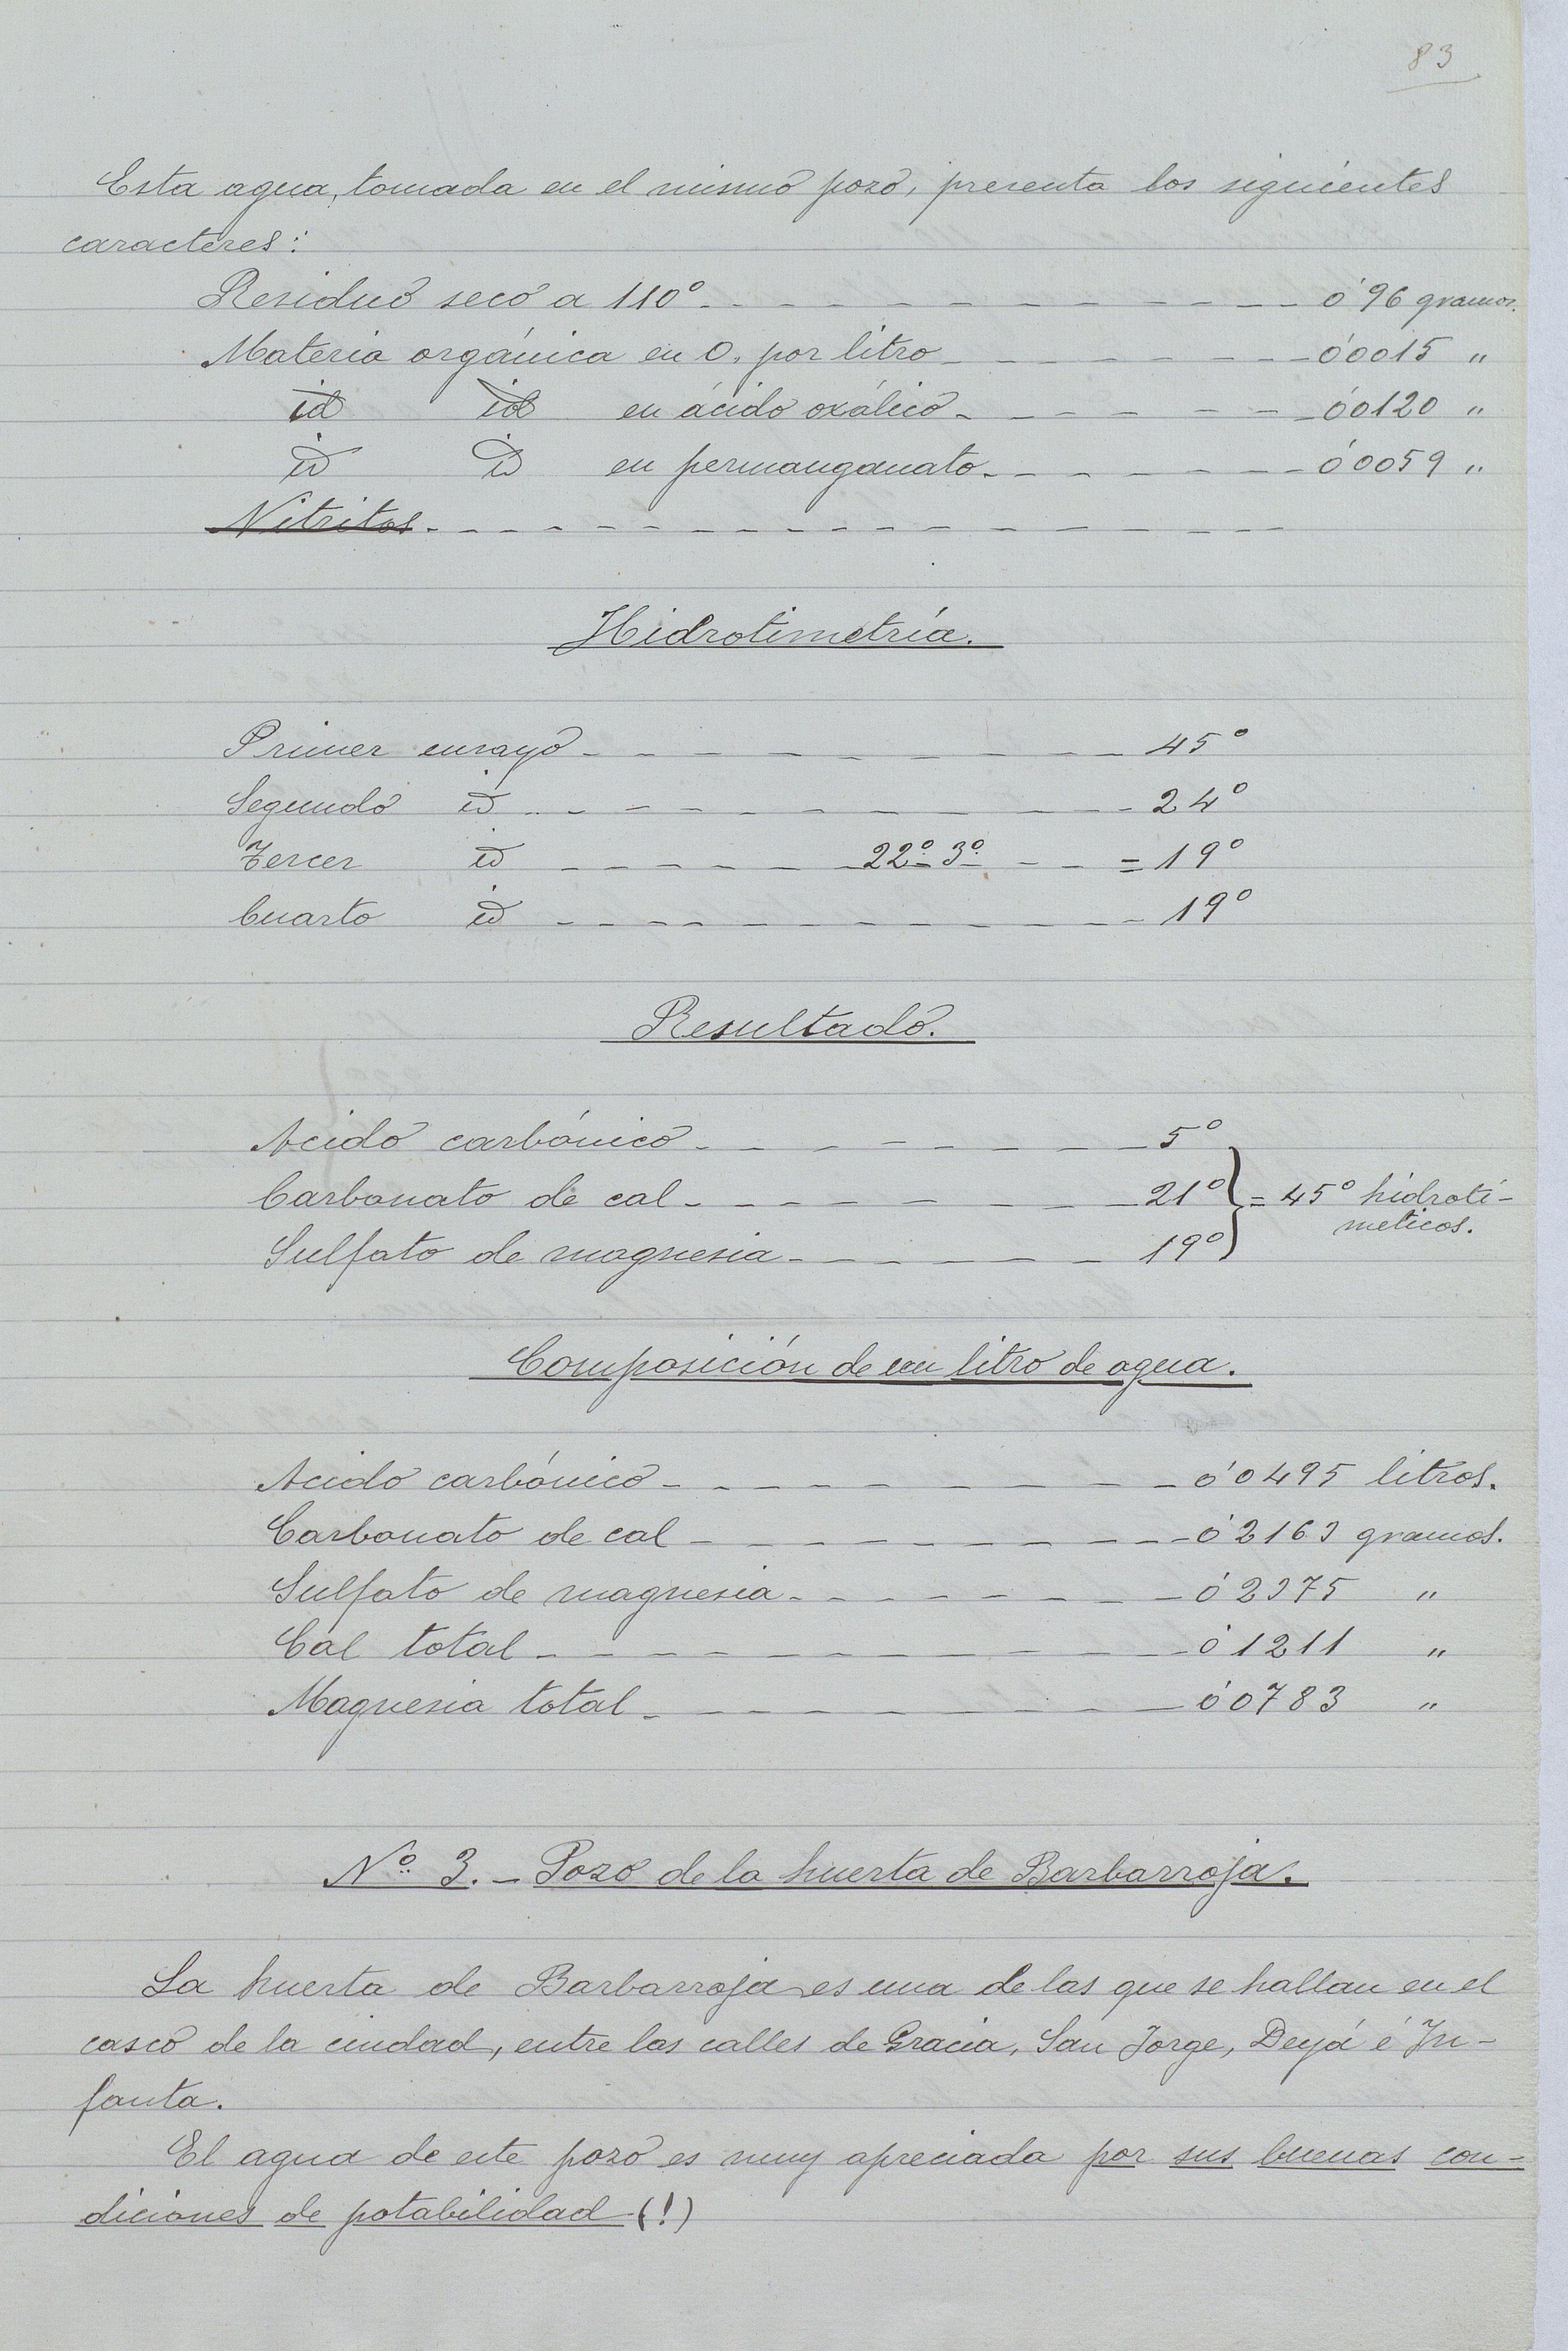 83
Esta agua, tomada en el mismo pozo, presenta los siguientes
caracteres:
Residuo seco a 110° - - - - - - - - - - ó'96 gramos.
Materia orgánica en O. por litro - - - - - - 0'0015 "
id id en ácido oxálico - - - - - - 0'0120 "
id id en permanganato - - - - - - 0'0059 "
Nitritos - - - - - - - - - - - - - - - -
Hidrotimetría.
Primer ensayo - - - - - - - - 45°
Segundo id - - - - - - - - 24°
Tercer id - - - - - 22° - 3° - - = 19°
Cuarto id - - - - - - - - - 19°
Resultado.
Acido carbónico - - - - - - - - 5°
Carbonato de cal - - - - - - - - 21° } = 45° hidroti-
meticos.
Sulfato de magnesia - - - - - - 19°
Composición de un litro de agua.
Acido carbónico - - - - - - - - 0'0495 litros.
Carbonato de cal - - - - - - - - 0'2163 gramos.
Sulfato de magnesia - - - - - - - 0'2375 "
Cal total - - - - - - - - - - 0'1211 "
Magnesia total - - - - - - - - - 0'0783 "
Nº 3. - Pozo de la huerta de Barbarroja.
La huerta de Barbarroja es una de las que se hallan en el
casco de la ciudad, entre las calles de Gracia, San Jorge, Deyá é In-
fanta.
El agua de este pozo es muy apreciada por sus buenas con-
diciones de potabilidad (!)